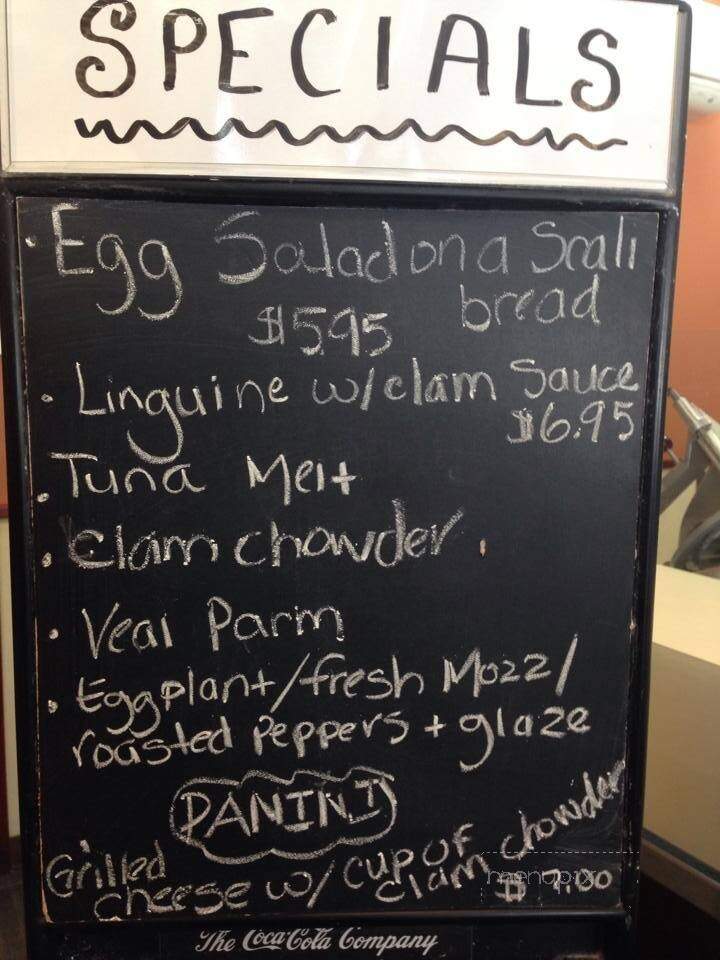 SPECIALS
· Egg Salad on a Scali
bread
$5.95
· Linguine w/clam Sauce
$6.95
· Tuna Melt
· Clam chowder
· Veal Parm
· Eggplant/fresh Mozz/
roasted Peppers + glaze
PANINI
Grilled
cheese w/ cup of
clam chowder
$ 9.00
menupix
The Coca-Cola Company